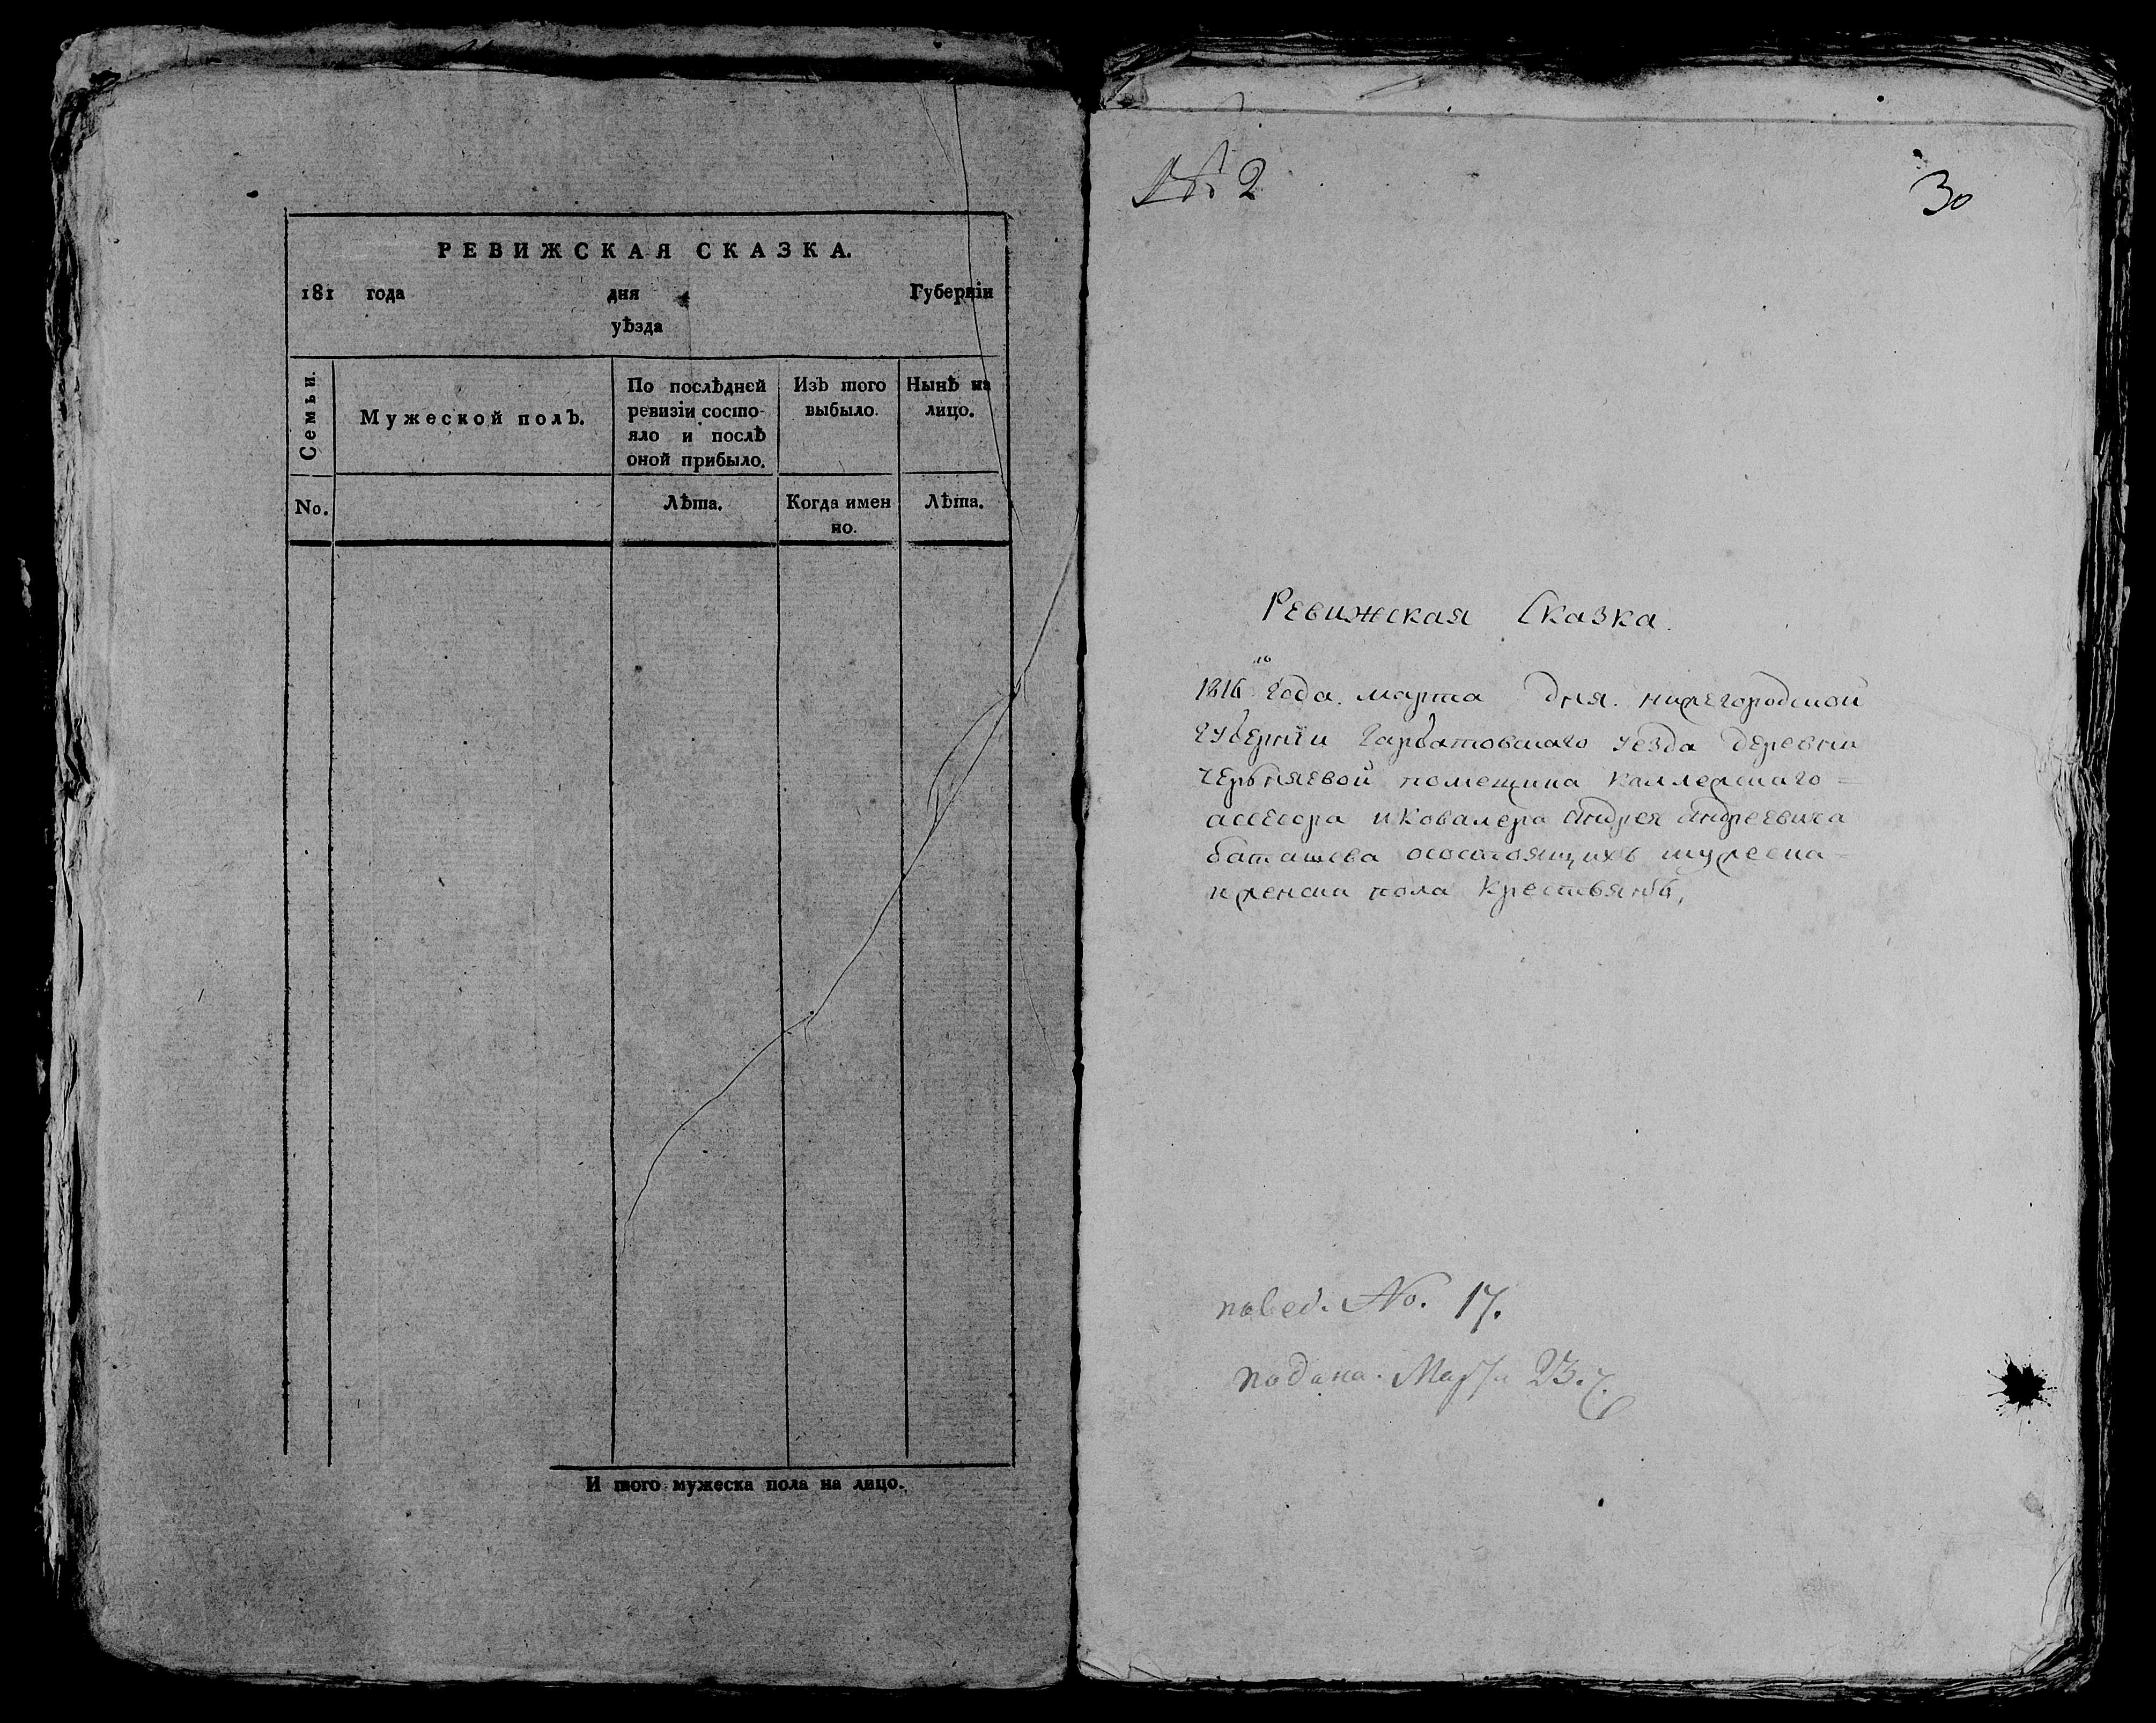 РЕВИЖСКАЯ СКАЗКА.
181 года дня Губерніи
уѣзда
Семьи.
Мужеской полъ.
По послѣдней
ревизіи состо-
яло и послѣ
оной прибыло.
Изъ того
выбыло.
Нынѣ на
лицо.
No.
Лѣта.
Когда имен
но.
Лѣта.
И того мужеска пола на лицо.
№ 2
30
Ревижская Сказка.
1816го года. марта дня. нижегородской
губерніи гарбатовскаго уезда деревни
черьняевой помещика коллежскаго =
асесора и ковалера андрея андреевича
баташева осостоящихъ мужеска =
и женска пола крестьянъ,
повед. No. 17.
подана. Марта 23.